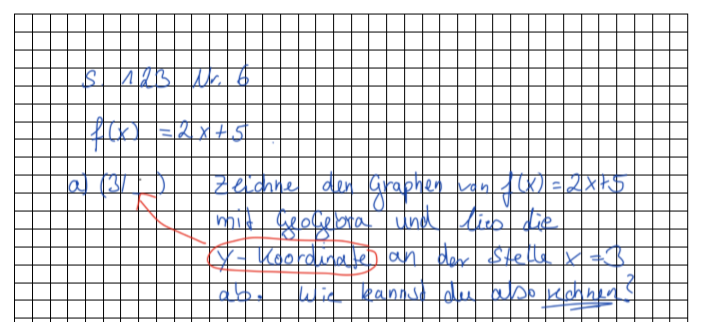 S 123 Nr. 6
f(x) = 2x+5
a) (3/ ) Zeichne den Graphen von f(x) = 2x+5
mit GeoGebra und lies die
y-Koordinate an der Stelle x = 3
ab. Wie kannst du also rechnen?